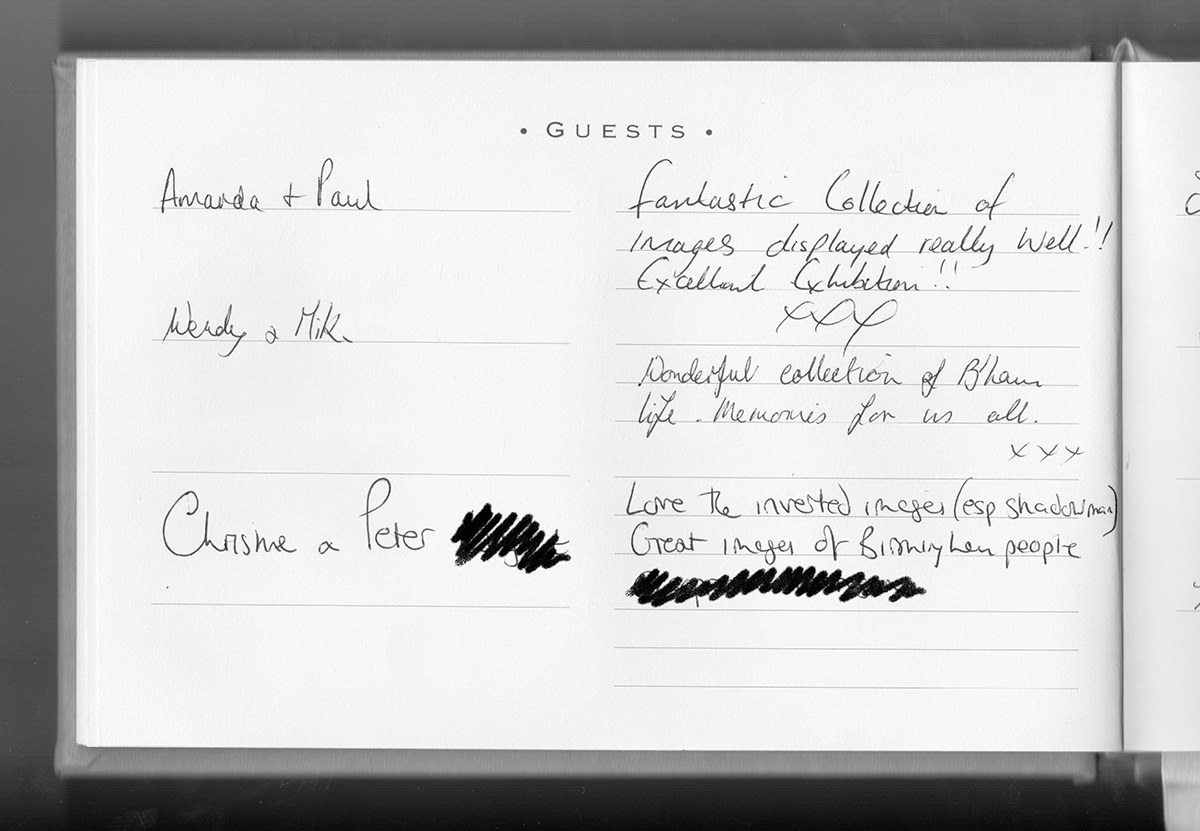 • GUESTS •
Amanda + Paul
Fantastic Collection of
Images displayed really Well!!
Excellent Exhibition!!
xxx
Wendy & Mike
Wonderful collection of B'ham
life. Memories for us all.
xxx
Christine & Peter
Love The inverted images (esp shadowman)
Great images of Birmingham people